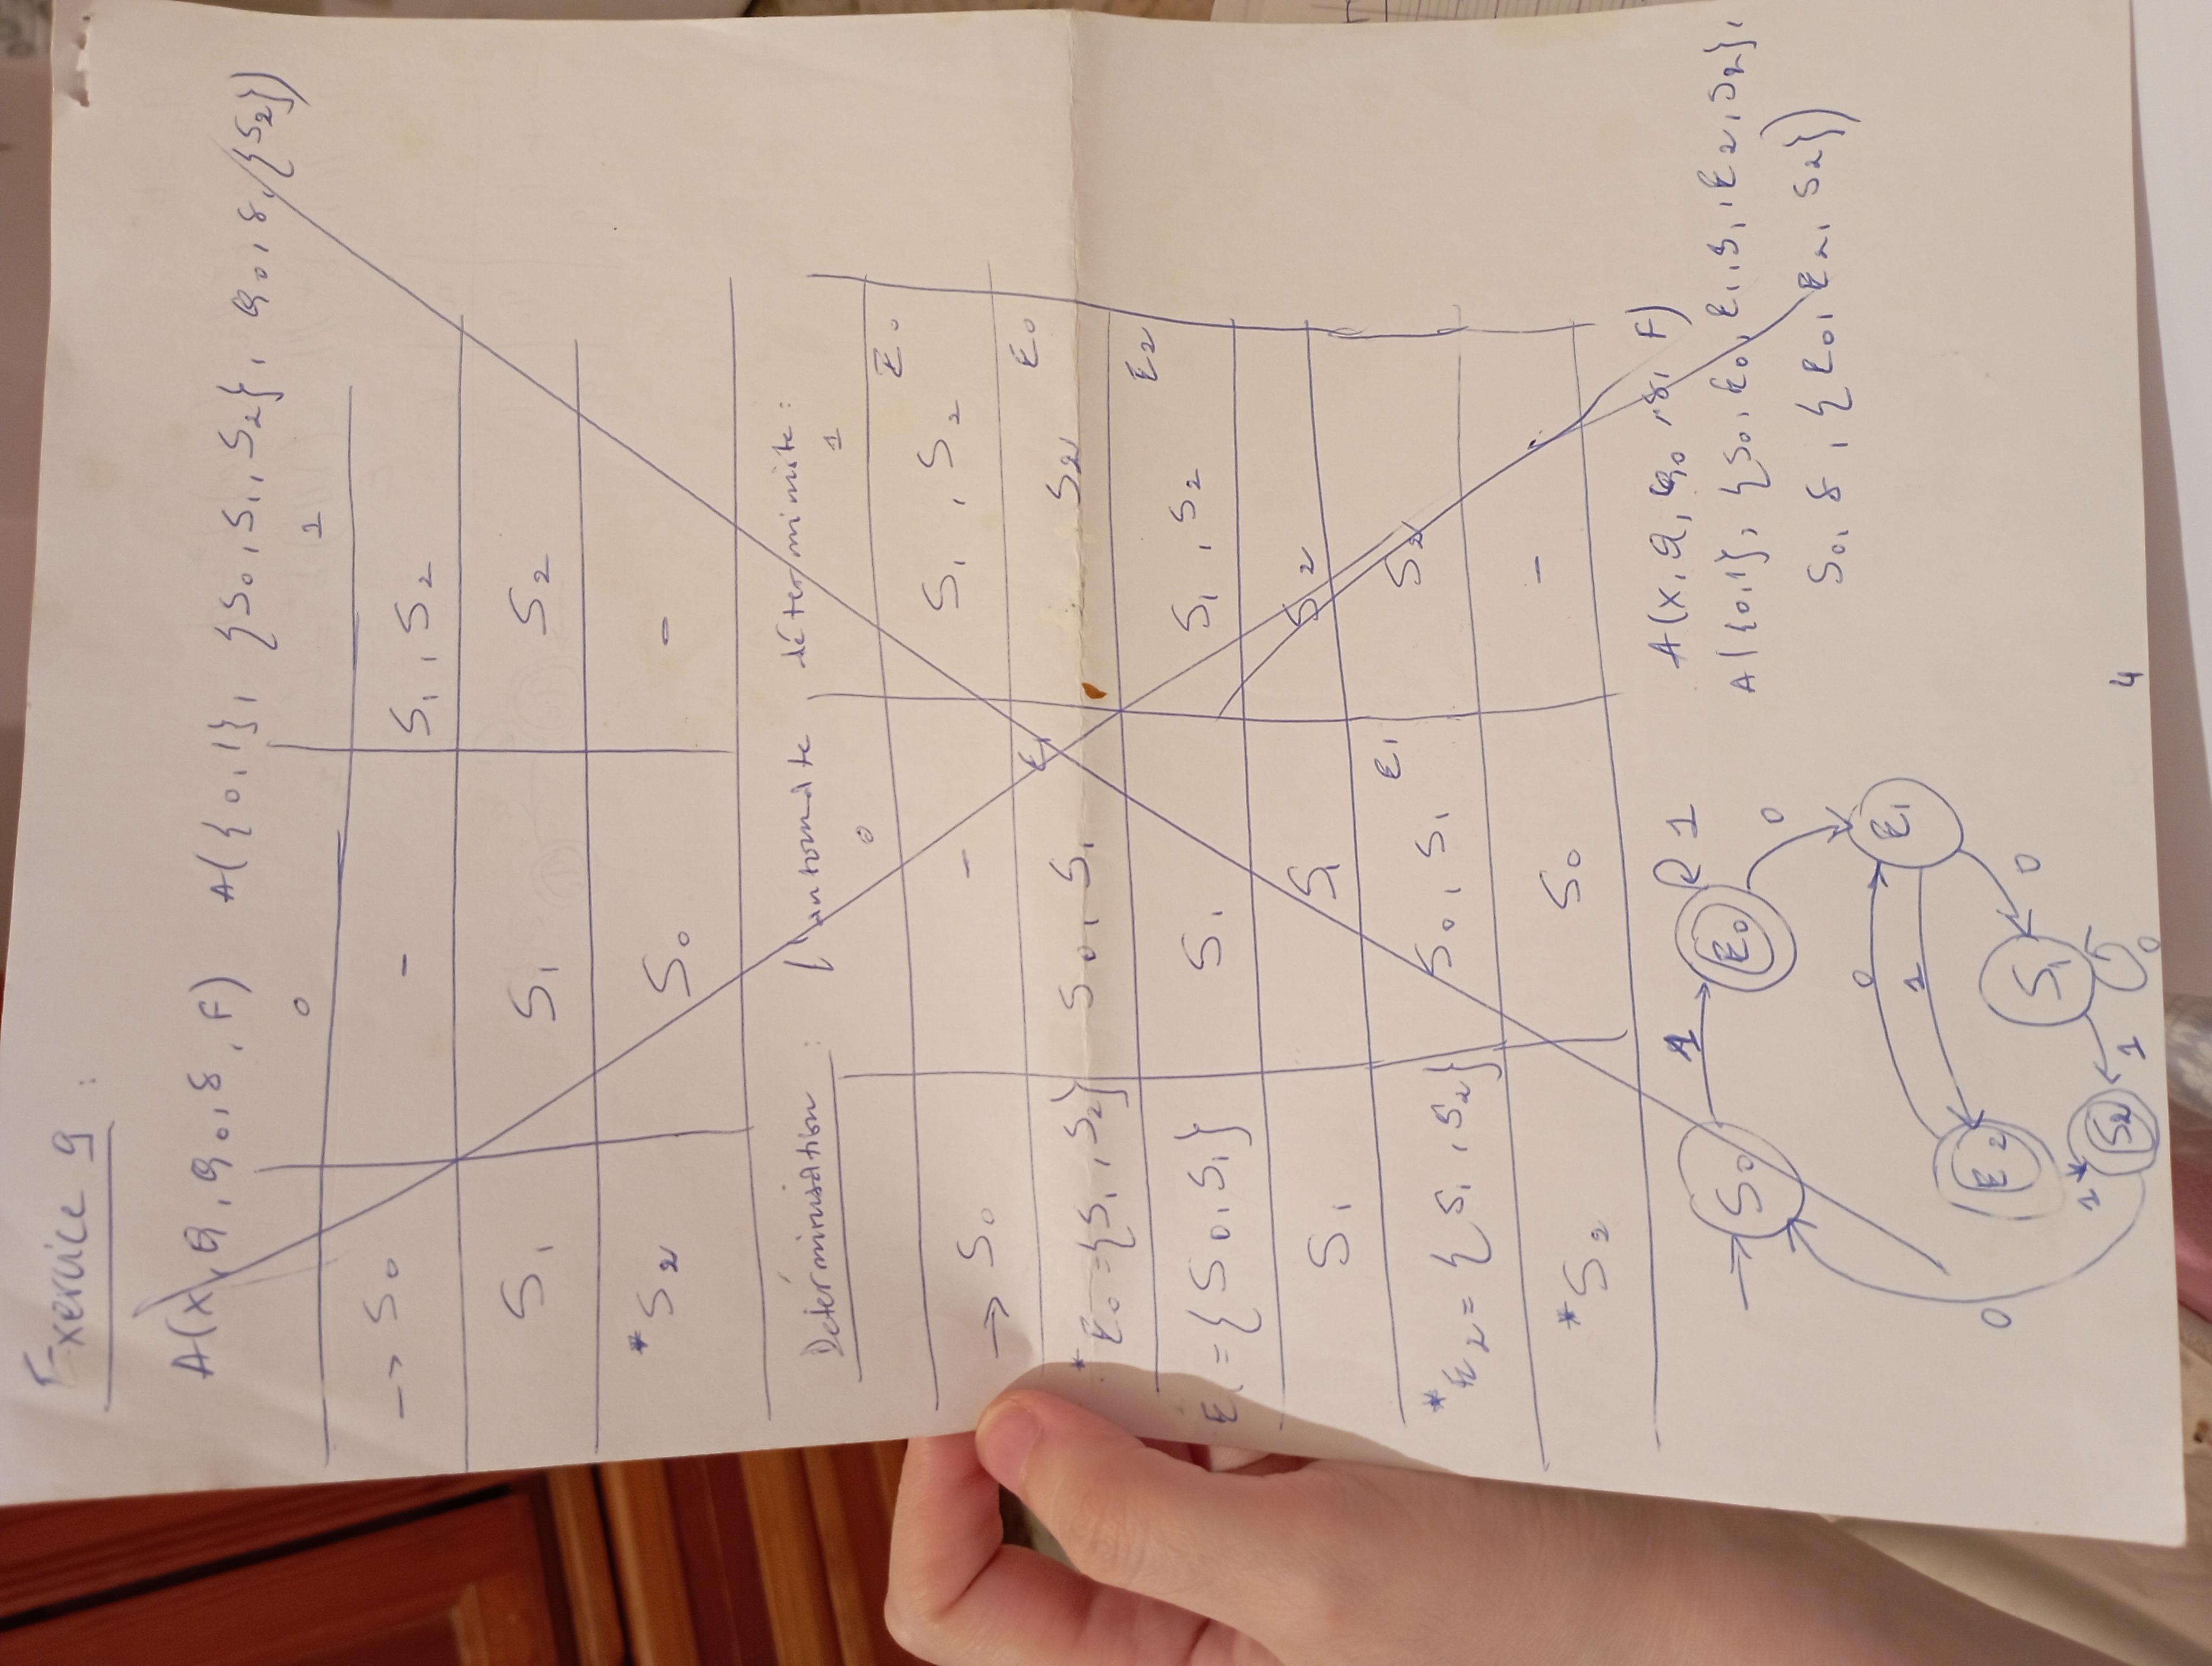 Exercice 9 :
A(X, Q, Q₀, δ, F) A({0,1}, {S₀, S₁, S₂}, Q₀, δ, {S₂})
0 1
→ S₀ - S₁, S₂
S₁ S₁ S₂
*S₂ S₀ -
Déterminisation : l'automate déterminite :
0 1
→ S₀ - S₁, S₂ E₀
*E₀ = {S₁, S₂} S₀, S₁ E₁ S₂ E₀
E₁ = {S₀, S₁} S₁ S₁, S₂ E₂
S₁ S₁ S₂
*E₂ = {S₁, S₂} S₀, S₁ E₁ S₂
*S₂ S₀ -
A(X, Q, Q₀, δ, F)
A({0,1}, {S₀, E₀, E₁, S₁, E₂, S₂},
S₀, δ, {E₀, E₂, S₂})
→ S₀ 1 E₀ 1
0
0 E₁
1
E₂
0 S₁ 0
1 S₂ 1 0
4